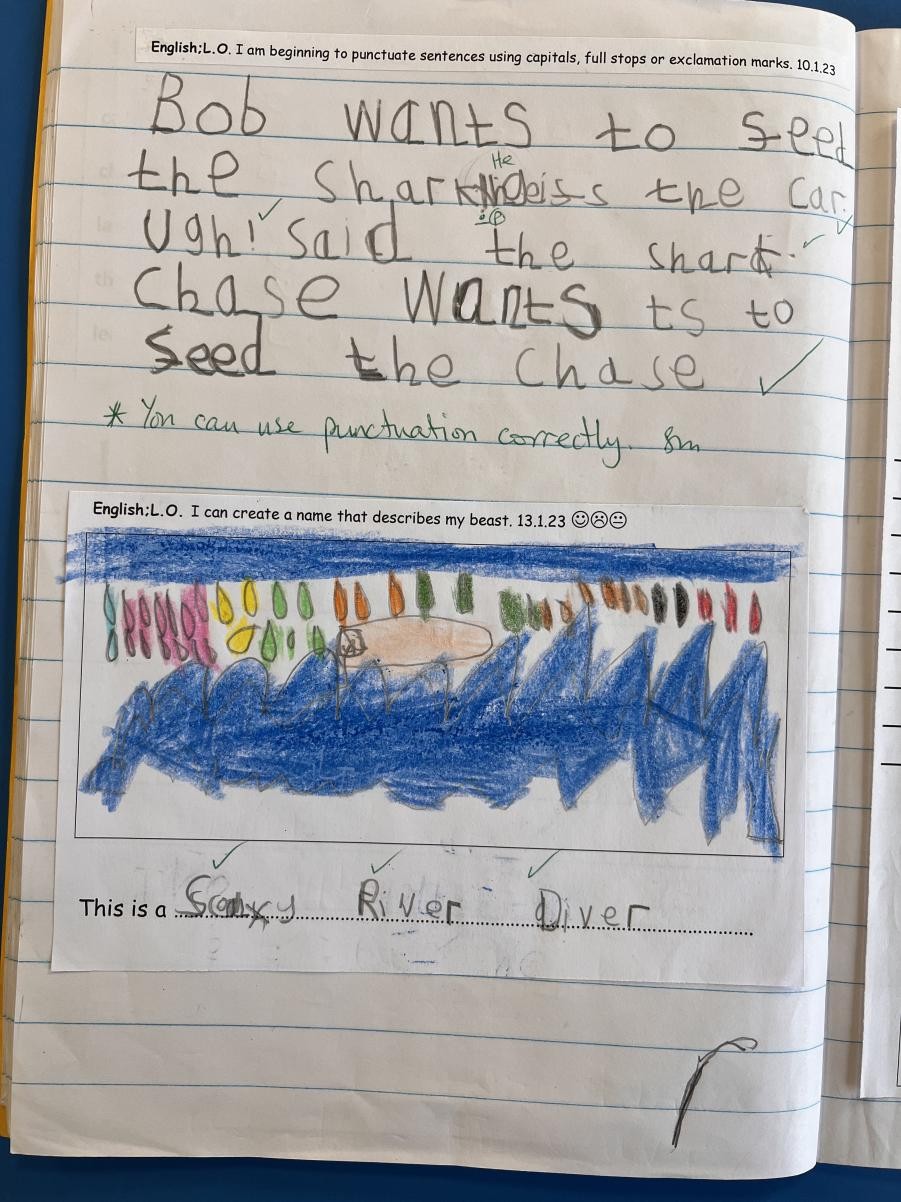 English;L.O. I am beginning to punctuate sentences using capitals, full stops or exclamation marks. 10.1.23
Bob wants to seed
He
the shark the car.
Ugh! said the shark.
Chase wants ts to
seed the Chase
* You can use punctuation correctly. 8m
English;L.O. I can create a name that describes my beast. 13.1.23 ☺☹😐
This is a River Diver